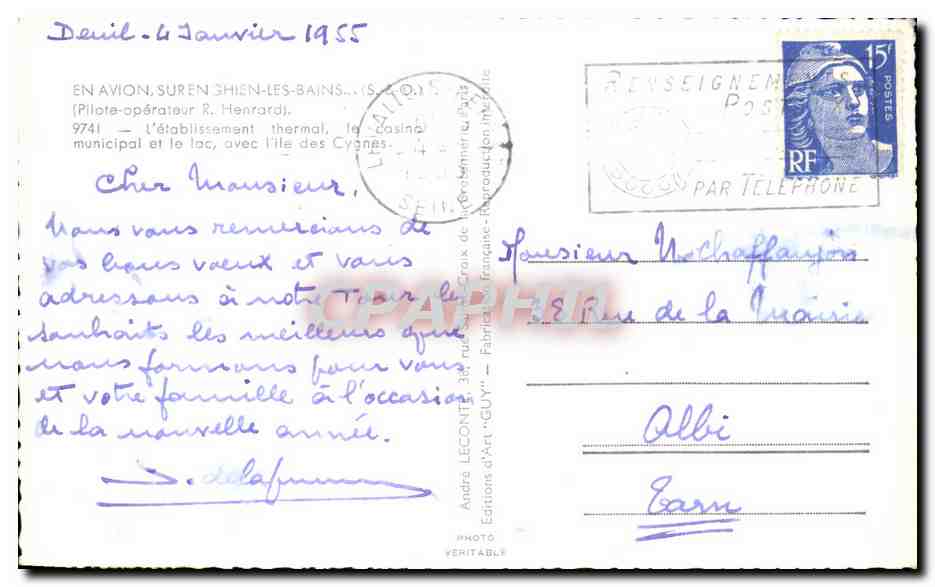 Deuil - 4 Janvier 1955
EN AVION, SUR ENGHIEN-LES-BAINS... (S.-&-O.)
(Pilote-opérateur R. Henrard).
9741 — L'établissement thermal, le casino
municipal et le lac, avec l'île des Cygnes.
Cher Monsieur,
Nous vous remercions de
vos bons vœux et vous
adressons à notre Tour les
souhaits les meilleurs que
nous formons pour vous
et votre famille à l'occasion
de la nouvelle année.
André LECONTE, 38, rue Sainte-Croix de la Bretonnerie, Paris
Editions d'Art "GUY" — Fabrication française - Reproduction interdite
PHOTO
VERITABLE
15F
POSTES
RF
RENSEIGNEMENTS
POSTAUX
PAR TELEPHONE
Monsieur Chaffaujon
38 Rue de la Mairie
Albi
Tarn
CPAPHIL